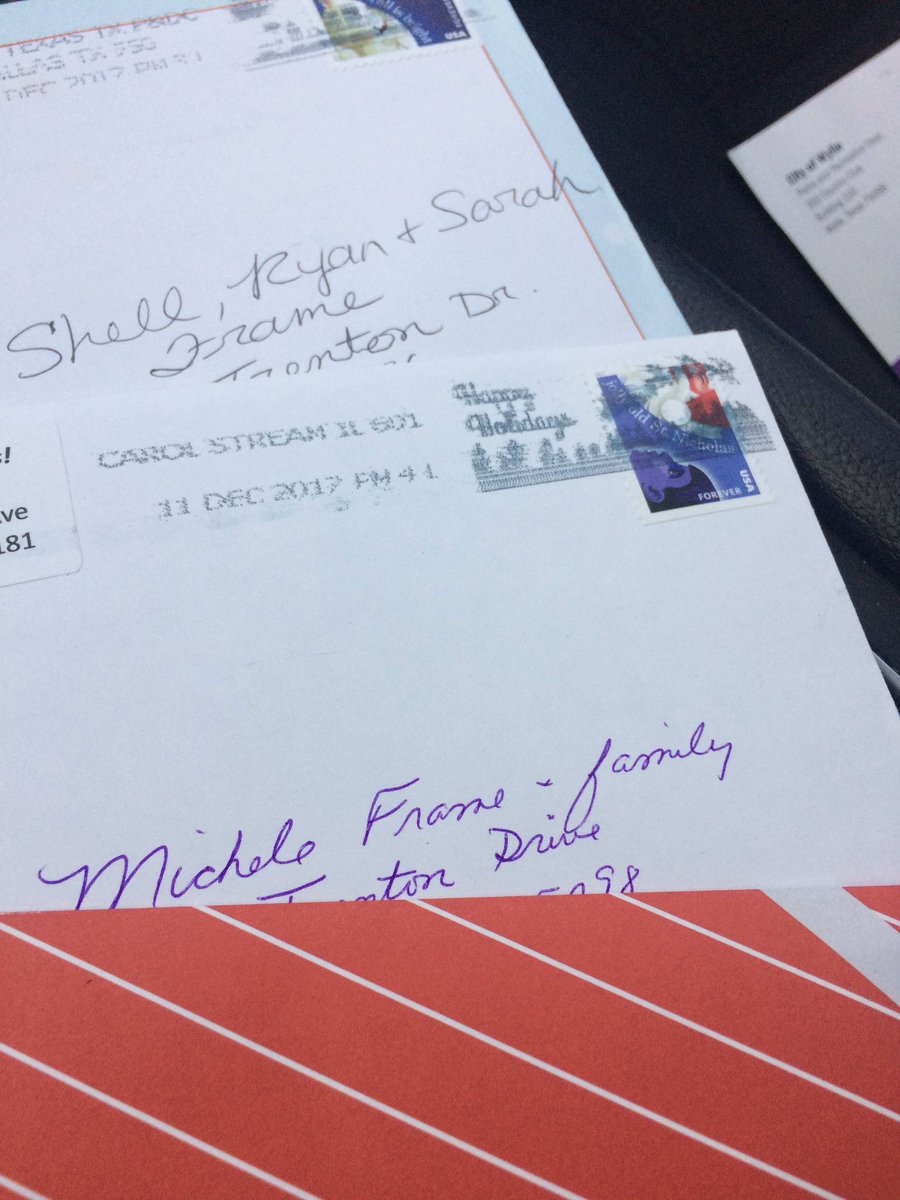 TEXAS TX
DALLAS TX 750
DEC 2017 PM 3 L
be bright
USA
Shell, Ryan + Sarah
Frame
Trenton Dr.
City of Wylie
CAROL STREAM IL 601
11 DEC 2017 PM 4 L
Happy
Holidays
jolly old St. Nicholas
FOREVER
USA
s!
ve
181
Michele Frame - family
Trenton Drive
98